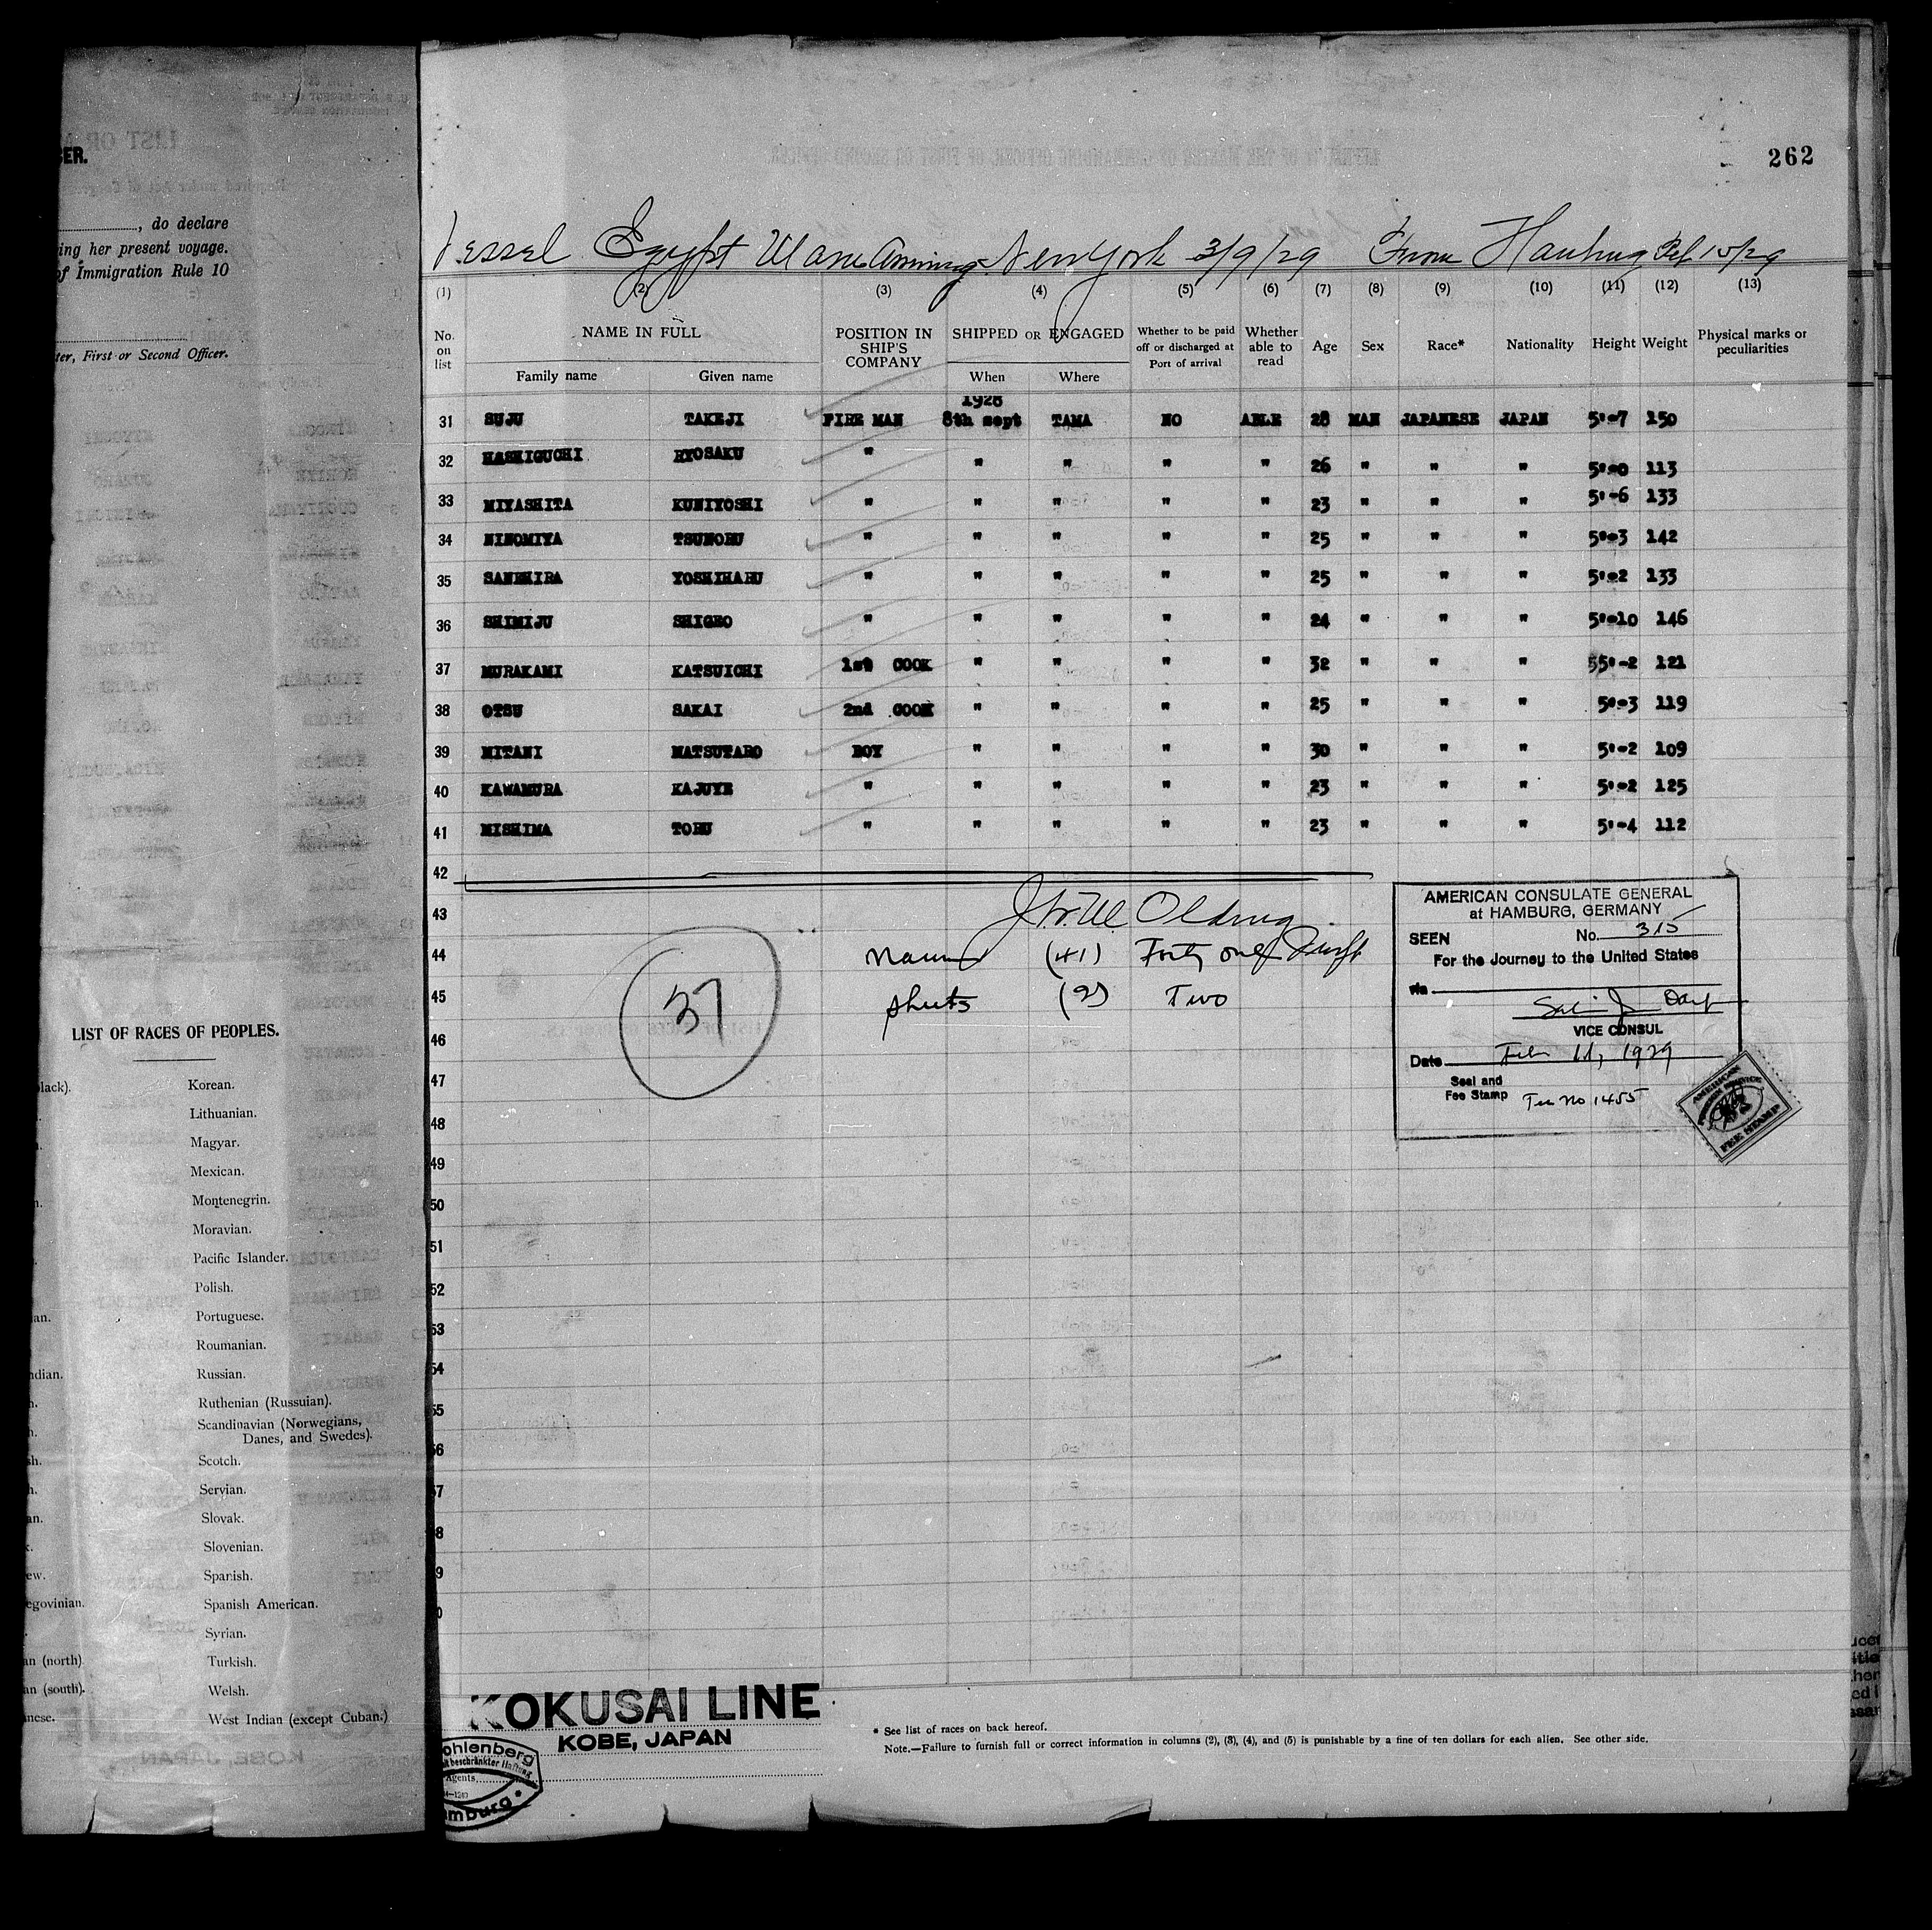 262
CER.
, do declare
ing her present voyage.
of Immigration Rule 10
ter, First or Second Officer.
LIST OF RACES OF PEOPLES.
lack).
Korean.
Lithuanian.
Magyar.
Mexican.
Montenegrin.
Moravian.
Pacific Islander.
Polish.
an.
Portuguese.
Roumanian.
ndian.
Russian.
Ruthenian (Russuian).
Scandinavian (Norwegians,
Danes, and Swedes).
sh.
Scotch.
Servian.
an.
Slovak.
Slovenian.
ew.
Spanish.
egovinian.
Spanish American.
Syrian.
an (north)
Turkish.
an (south).
Welsh.
nese.
West Indian (except Cuban.)
Vessel Egypt Maru Arriving New York 3/9/29 From Hamburg Feb 15/29
(1) (2) (3) (4) (5) (6) (7) (8) (9) (10) (11) (12) (13)
No. on list
NAME IN FULL
Family name Given name
POSITION IN SHIP'S COMPANY
SHIPPED OR ENGAGED
When Where
Whether to be paid off or discharged at Port of arrival
Whether able to read
Age Sex Race* Nationality Height Weight
Physical marks or peculiarities
1928
31 SUJU TAKEJI FIRE MAN 8th sept TAMA NO ABLE 28 MAN JAPANESE JAPAN 5'-7 150
32 HASHIGUCHI RYOSAKU " " " " " 26 " " " 5'-0 113
33 MIYASHITA KUNIYOSHI " " " " " 23 " " " 5'-6 133
34 NINOMIYA TSUNORU " " " " " 25 " " " 5'-3 142
35 SANEHIRA YOSHIHARU " " " " " 25 " " " 5'-2 133
36 SHIMIJU SHIGEO " " " " " 24 " " " 5'-10 146
37 MURAKAMI KATSUICHI 1st COOK " " " " 32 " " " 55'-2 121
38 OTSU SAKAI 2nd COOK " " " " 25 " " " 5'-3 119
39 MITANI MATSUTARO BOY " " " " 30 " " " 5'-2 109
40 KAWAMURA KAJUYE " " " " " 23 " " " 5'-2 125
41 MISHIMA TORU " " " " " 23 " " " 5'-4 112
42
43
44 (41) Forty one
45 sheets (2) Two
37
46
47
48
49
50
51
52
53
54
55
56
57
8
9
0
AMERICAN CONSULATE GENERAL
at HAMBURG, GERMANY
SEEN No. 315
For the Journey to the United States
via
VICE CONSUL
Date Feb 11, 1929
Seal and
Fee Stamp Fee No 1455
AMERICAN
FEE STAMP
KOKUSAI LINE
KOBE, JAPAN
ohlenberg
beschränkter Haftung
Agents
amburg
* See list of races on back hereof.
Note.—Failure to furnish full or correct information in columns (2), (3), (4), and (5) is punishable by a fine of ten dollars for each alien. See other side.